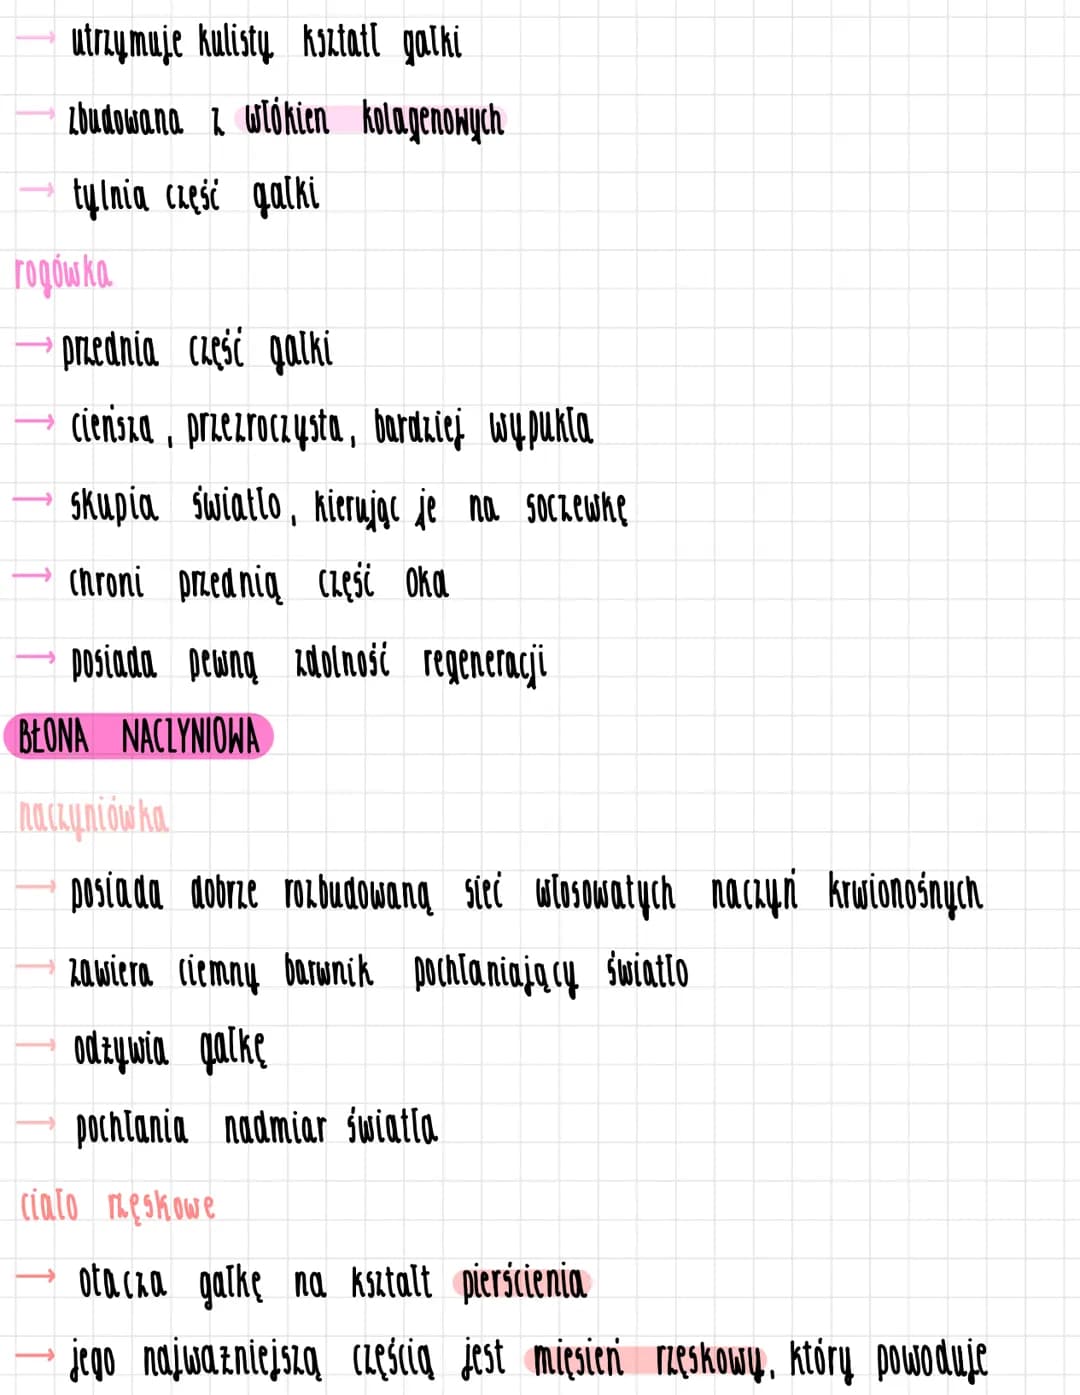 → utrzymuje kulisty kształt gałki
→ zbudowana z włókien kolagenowych
→ tylnia część gałki
rogówka
→ przednia część gałki
→ cieńsza, przezroczysta, bardziej wypukła
→ skupia światło, kierując je na soczewkę
→ chroni przednią część oka
→ posiada pewną zdolność regeneracji
BŁONA NACZYNIOWA
naczyniówka
→ posiada dobrze rozbudowaną sieć włosowatych naczyń krwionośnych
→ zawiera ciemny barwnik pochłaniający światło
→ odżywia gałkę
→ pochłania nadmiar światła
ciało rzęskowe
→ otacza gałkę na kształt pierścienia
→ jego najważniejszą częścią jest mięsień rzęskowy, który powoduje